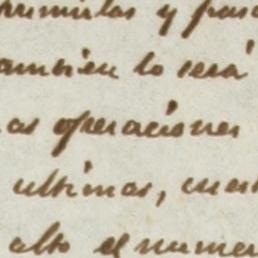 y
tambien lo será
as operaciones
ultimas,
alto el numer